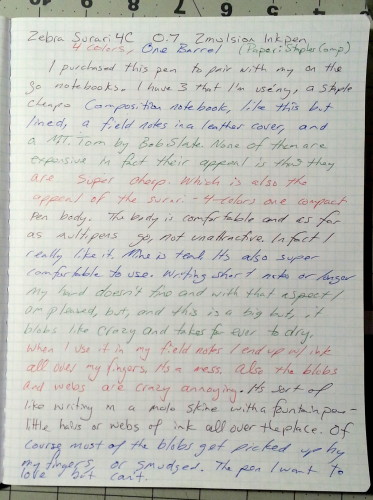 Zebra Surari 4C 0.7 Emulsion Ink pen
4 colors, One Barrel (Paper: Staples Comp)
I purchased this pen to pair with my on the
go notebooks. I have 3 that I'm using, a staple
cheapo Composition notebook, like this but
lined, a field notes in a leather cover, and
a MT. Tom by Bob Slate. None of them are
expensive in fact their appeal is that they
are super cheap. Which is also the
appeal of the surari - 4-colors one compact
pen body. The body is comfortable and as far
as multipens go, not unattractive. In fact I
really like it. Mine is teal. Its also super
comfortable to use. Writing short notes or longer
my hand doesn't tire and with that aspect I
am pleased, but, and this is a big but, it
blobs like crazy and takes for ever to dry.
When I use it in my field notes I end up w/ ink
all over my fingers. Its a mess. Also the blobs
and webs are crazy annoying. Its sort of
like writing in a mole skine with a fountain pen-
little hairs or webs of ink all over the place. Of
course most of the blobs get picked up by
my fingers, or smudged. The pen I want to
love but can't.